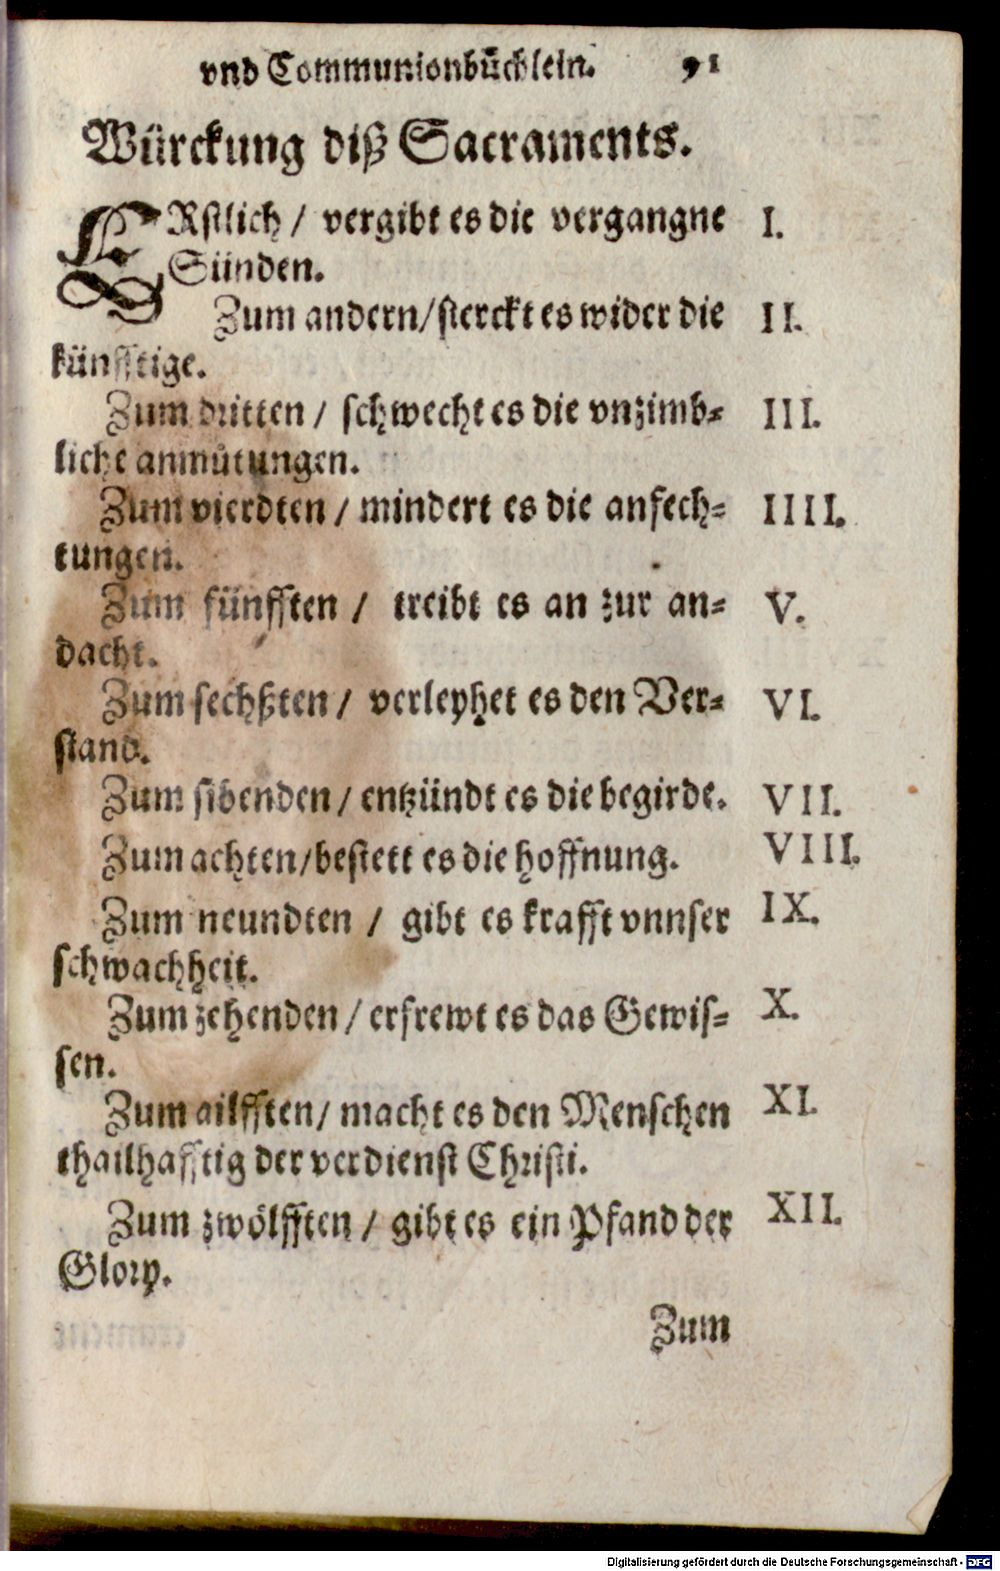 vnd Communionbüchlein. 91
Würckung diß Sacraments.
ERstlich / vergibt es die vergangne I.
Sünden.
Zum andern/sterckt es wider die II.
künfftige.
Zum dritten / schwecht es die vnzimb= III.
liche anmütungen.
Zum vierdten / mindert es die anfech= IIII.
tungen.
Zum fünfften / treibt es an zur an= V.
dacht.
Zum sechßten / verleyhet es den Ver= VI.
stand.
Zum sibenden / entzündt es die begirde. VII.
Zum achten/bestett es die hoffnung. VIII.
Zum neundten / gibt es krafft vnnser IX.
schwachheit.
Zum zehenden / erfrewt es das Gewis= X.
sen.
Zum ailfften/ macht es den Menschen XI.
thailhafftig der verdienst Christi.
Zum zwölfften / gibt es ein Pfand der XII.
Glory.
Zum
Digitalisierung gefördert durch die Deutsche Forschungsgemeinschaft - DFG